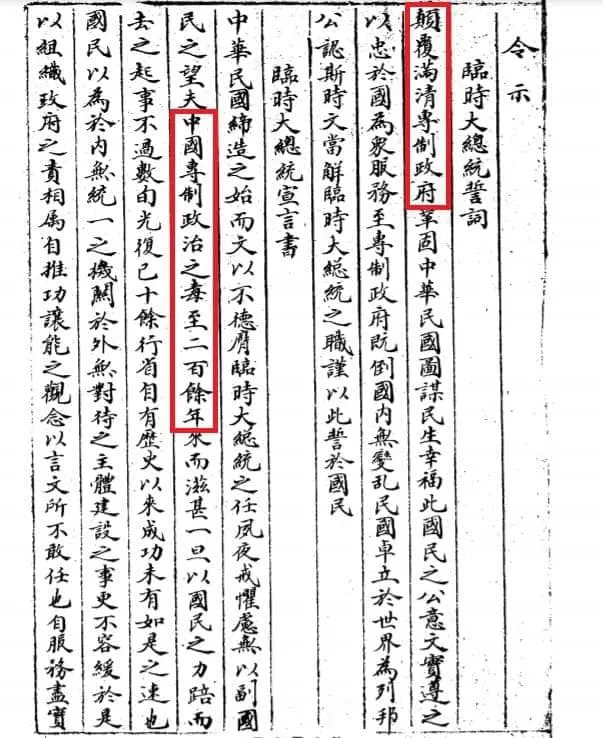 令示
臨時大總統誓詞
顛覆滿清專制政府鞏固中華民國圖謀民生幸福此國民之公意文實遵之
以忠於國為眾服務至專制政府既倒國內無變亂民國卓立於世界為列邦
公認斯時文當解臨時大總統之職謹以此誓於國民
臨時大總統宣言書
中華民國締造之始而文以不德膺臨時大總統之任夙夜戒懼慮無以副國
民之望夫中國專制政治之毒至二百餘年來而滋甚一旦以國民之力踣而
去之起事不過數旬光復已十餘行省自有歷史以來成功未有如是之速也
國民以為於內無統一之機關於外無對待之主體建設之事更不容緩於是
以組織政府之責相屬自推功讓能之觀念以言文所不敢任也自服務盡實